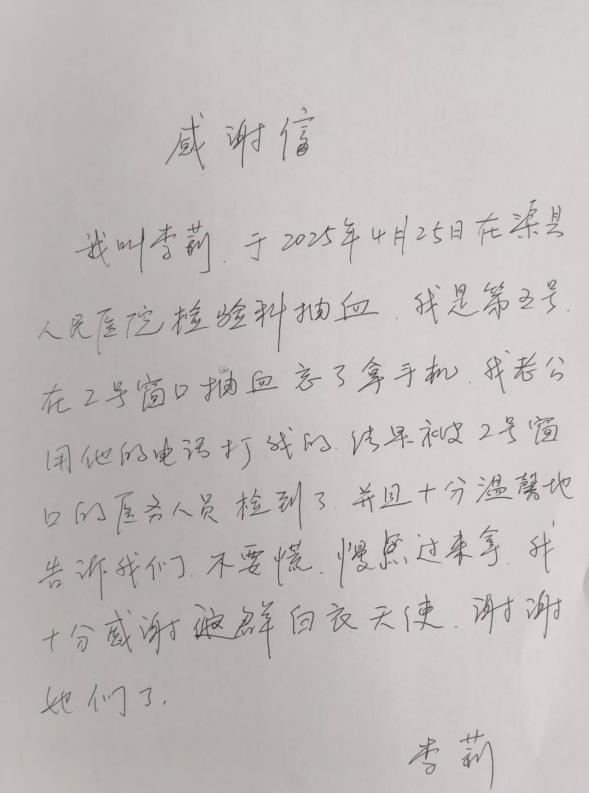 感谢信
我叫李莉.于2025年4月25日在渠县
人民医院检验科抽血.我是第五号.
在2号窗口抽血忘了拿手机.我老公
用他的电话打我的.结果被2号窗
口的医务人员检到了.并且十分温馨地
告诉我们.不要慌.慢点过来拿.我
十分感谢这群白衣天使.谢谢
她们了.
李莉